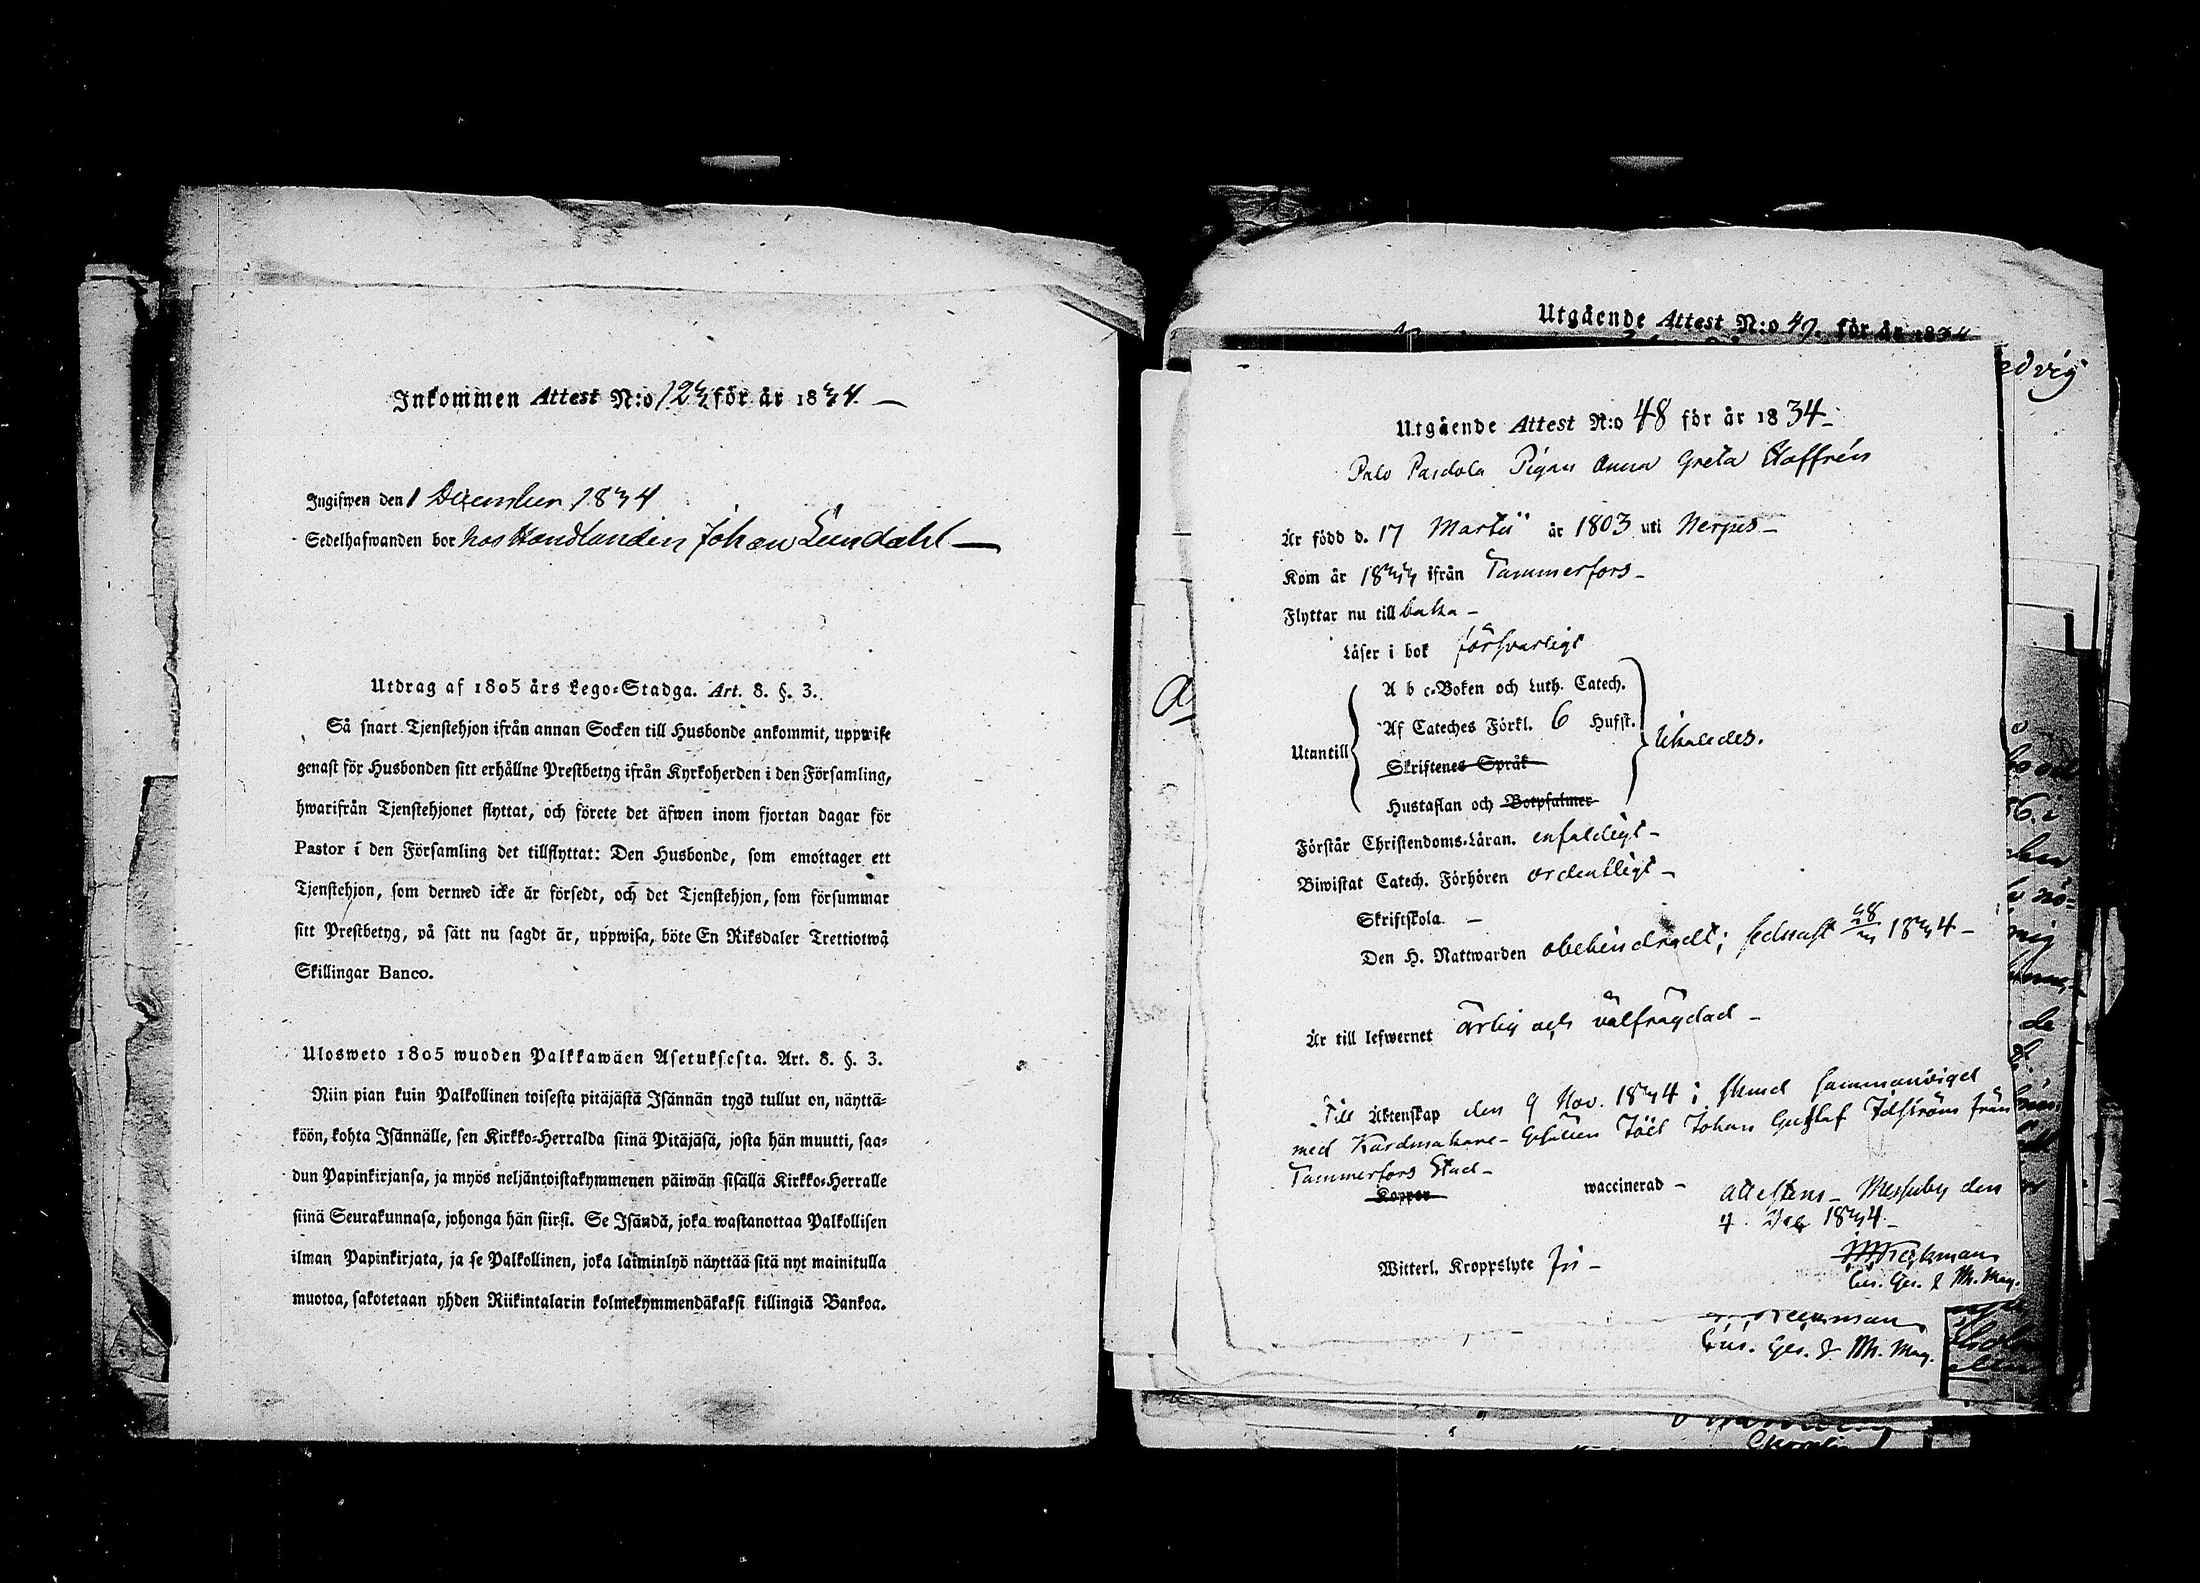 Inkommen Attest N:o 123 för år 1834. —
Ingifwen den 1 December 1834
Sedelhafwanden bor hos Handlanden Johan Lundahl —
Utdrag af 1805 års Lego-Stadga. Art. 8. §. 3.
Så snart Tjenstehjon ifrån annan Socken till Husbonde ankommit, uppwise
genast för Husbonden sitt erhållne Prestbetyg ifrån Kyrkoherden i den Församling,
hwarifrån Tjenstehjonet flyttat, och förete det äfwen inom fjortan dagar för
Pastor i den Församling det tillflyttat: Den Husbonde, som emottager ett
Tjenstehjon, som dermed icke är försedt, och det Tjenstehjon, som försummar
sitt Prestbetyg, på sätt nu sagdt är, uppwisa, böte En Riksdaler Trettiotwå
Skillingar Banco.
Ulosweto 1805 wuoden Palkkawäen Asetuksesta. Art. 8. §. 3.
Niin pian kuin Palkollinen toisesta pitäjästä Isännän tygö tullut on, näyttä-
köön, kohta Isännälle, sen Kirkko-Herralda siinä Pitäjäsä, josta hän muutti, saa-
dun Papinkirjansa, ja myös neljäntoistakymmenen päiwän sisällä Kirkko-Herralle
siinä Seurakunnasa, johonga hän siirsi. Se Isändä, joka wastanottaa Palkollisen
ilman Papinkirjata, ja se Palkollinen, joka laiminlyö näyttää sitä nyt mainitulla
muotoa, sakotetaan yhden Riikintalarin kolmekymmendäkaksi killingiä Bankoa.
Utgående Attest N:o 49. för år 1834
Utgående Attest N:o 48 för år 1834-
Palo Pigan Anna Greta Hoffrén
Är född d. 17 Martii år 1803 uti Nerpes-
Kom år 1833 ifrån Tammerfors-
Flyttar nu till baka -
Läser i bok försvarligt
A b c-Boken och Luth. Catech.
Af Cateches Förkl. 6 Hufst.
Utantill likaledes.
Skriftenes Språk
Hustaflan och Botpsalmer
Förstår Christendoms-Läran. enfaldigt -
Biwistat Catech. Förhören ordentligt -
Skriftskola. -
Den H. Nattwarden obehindradt; sednast 1834-
Är till lefwernet ärlig och välfrägdad -
Till Äktenskap den 9 Nov. 1834; sammanvigd
med Kardmakare-Gesällen Johan Gustaf Idström från
Tammerfors Stad-
Koppor waccinerad - attesteras - Messuby den
1834-
Witterl. Kroppslyte